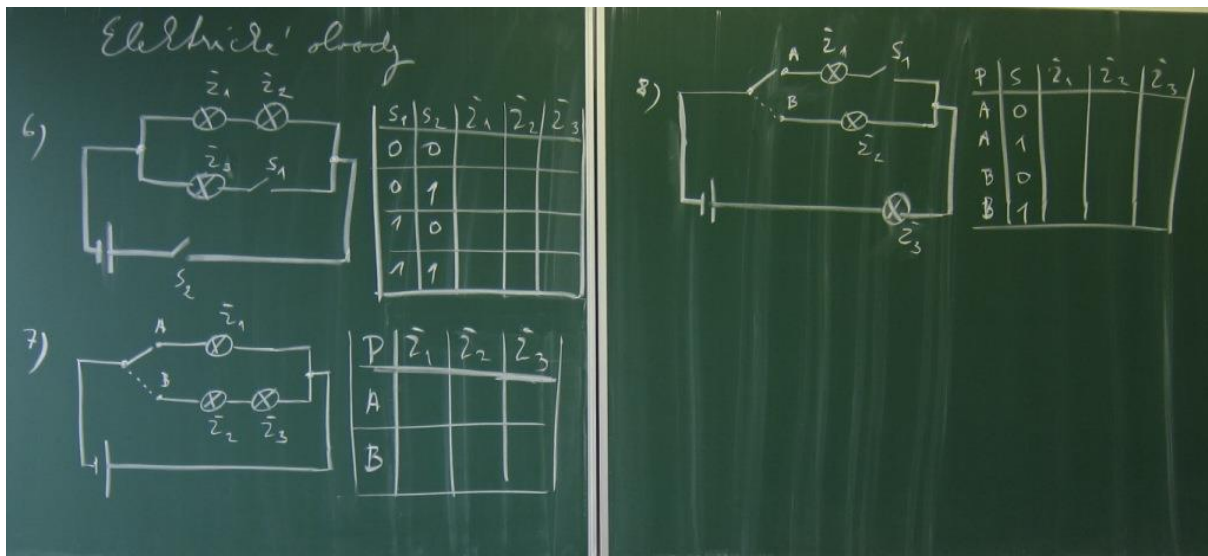 Elektrické obvody
6)
Ž1 Ž2
Ž3 S1
S2
S1 S2 Ž1 Ž2 Ž3
0 0
0 1
1 0
1 1
7)
A Ž1
B
Ž2 Ž3
P Ž1 Ž2 Ž3
A
B
8)
A Ž1 S1
B
Ž2
Ž3
P S Ž1 Ž2 Ž3
A 0
A 1
B 0
B 1